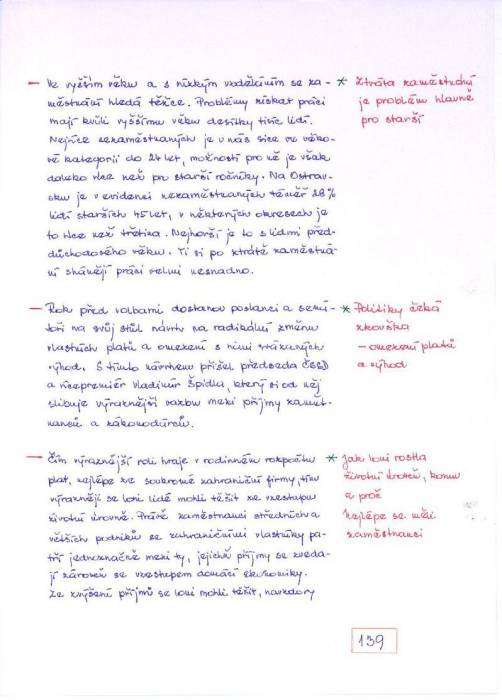 — Ve vyšším věku a s nízkým vzděláním se za-
městnání hledá těžce. Problémy získat práci
mají kvůli vyššímu věku desítky tisíc lidí.
Nejvíce nezaměstnaných je u nás sice ve věko-
vé kategorii do 24 let, možností pro ně je však
daleko více než pro starší ročníky. Na Ostrav-
sku je v evidenci nezaměstnaných téměř 28%
lidí starších 45 let, v některých okresech je
to více než třetina. Nejhorší je to s lidmi před-
důchodového věku. Ti si po ztrátě zaměstná-
ní shánějí práci velmi nesnadno.
* Ztráta zaměstnání
je problém hlavně
pro starší
— Rok před volbami dostanou poslanci a sená-
toři na svůj stůl návrh na radikální změnu
vlastních platů a omezení s nimi svázaných
výhod. S tímto návrhem přišel předseda ČSSD
a vicepremiér Vladimír Špidla, který si od něj
slibuje výraznější vazbu mezi příjmy zaměst-
nanců a zákonodárců.
* Politiky čeká
zkouška
— omezení platů
a výhod
— Čím výraznější roli hraje v rodinném rozpočtu
plat, nejlépe ze soukromé zahraniční firmy, tím
výrazněji se loni lidé mohli těšit ze vzestupu
životní úrovně. Právě zaměstnanci středních a
větších podniků se zahraničními vlastníky pa-
tří jednoznačně mezi ty, jejichž příjmy se zveda-
jí zároveň se vzestupem domácí ekonomiky.
Ze zvýšení příjmů se loni mohli těšit, navzdory
* Jak loni rostla
životní úroveň, komu
a proč
Nejlépe se měli
zaměstnanci
139